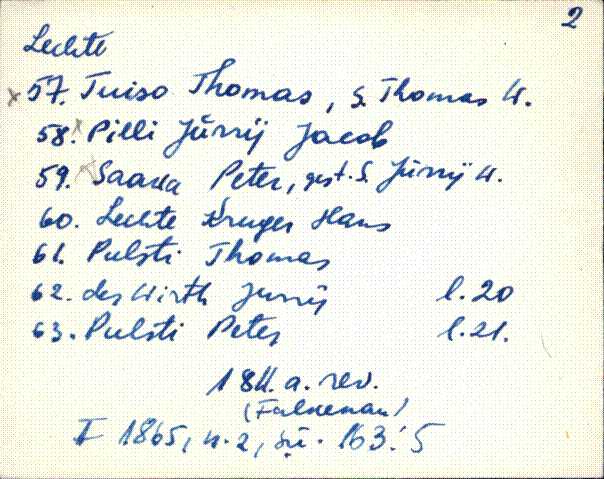 2
Lechte
x 57. Tuiso Thomas, S. Thomas W.
58. x Pilli Jürrÿ Jacob
59. Saarna Peter, gest. S. Jürrÿ W.
60. Lechte Kruger Hans
61. Pulsti Thomas
62. des Wirth Jurrÿ l. 20
63. Pulsti Peter l. 21.
1811. a. rev.
(Falkenau)
I 1865, n. 2, sü. 163: 5